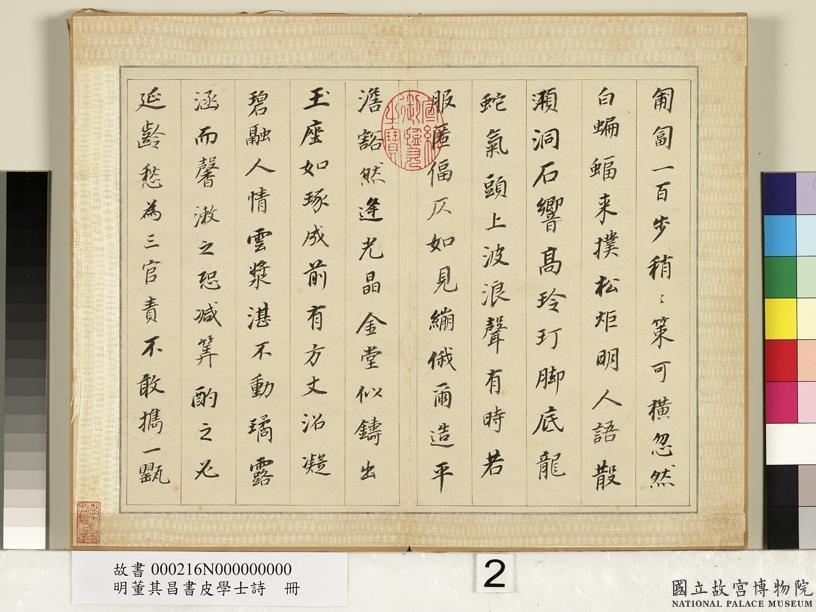 匍匐一百步稍〻策可橫忽然
白蝙蝠来撲松炬明人語散
澒洞石響高玲玎脚底龍
蛇氣頭上波浪聲有時若
服匿偪仄如見繃俄爾造平
澹豁然逢光晶金堂似鑄出
玉座如琢成前有方丈沼凝
碧融人情雲漿湛不動璚露
涵而馨漱之恐减筭酌之必
延齡愁為三官責不敢攜一甖
宣統御覽之寶
故書 000216N000000000
明董其昌書皮學士詩 冊
2
國立故宮博物院
NATIONAL PALACE MUSEUM